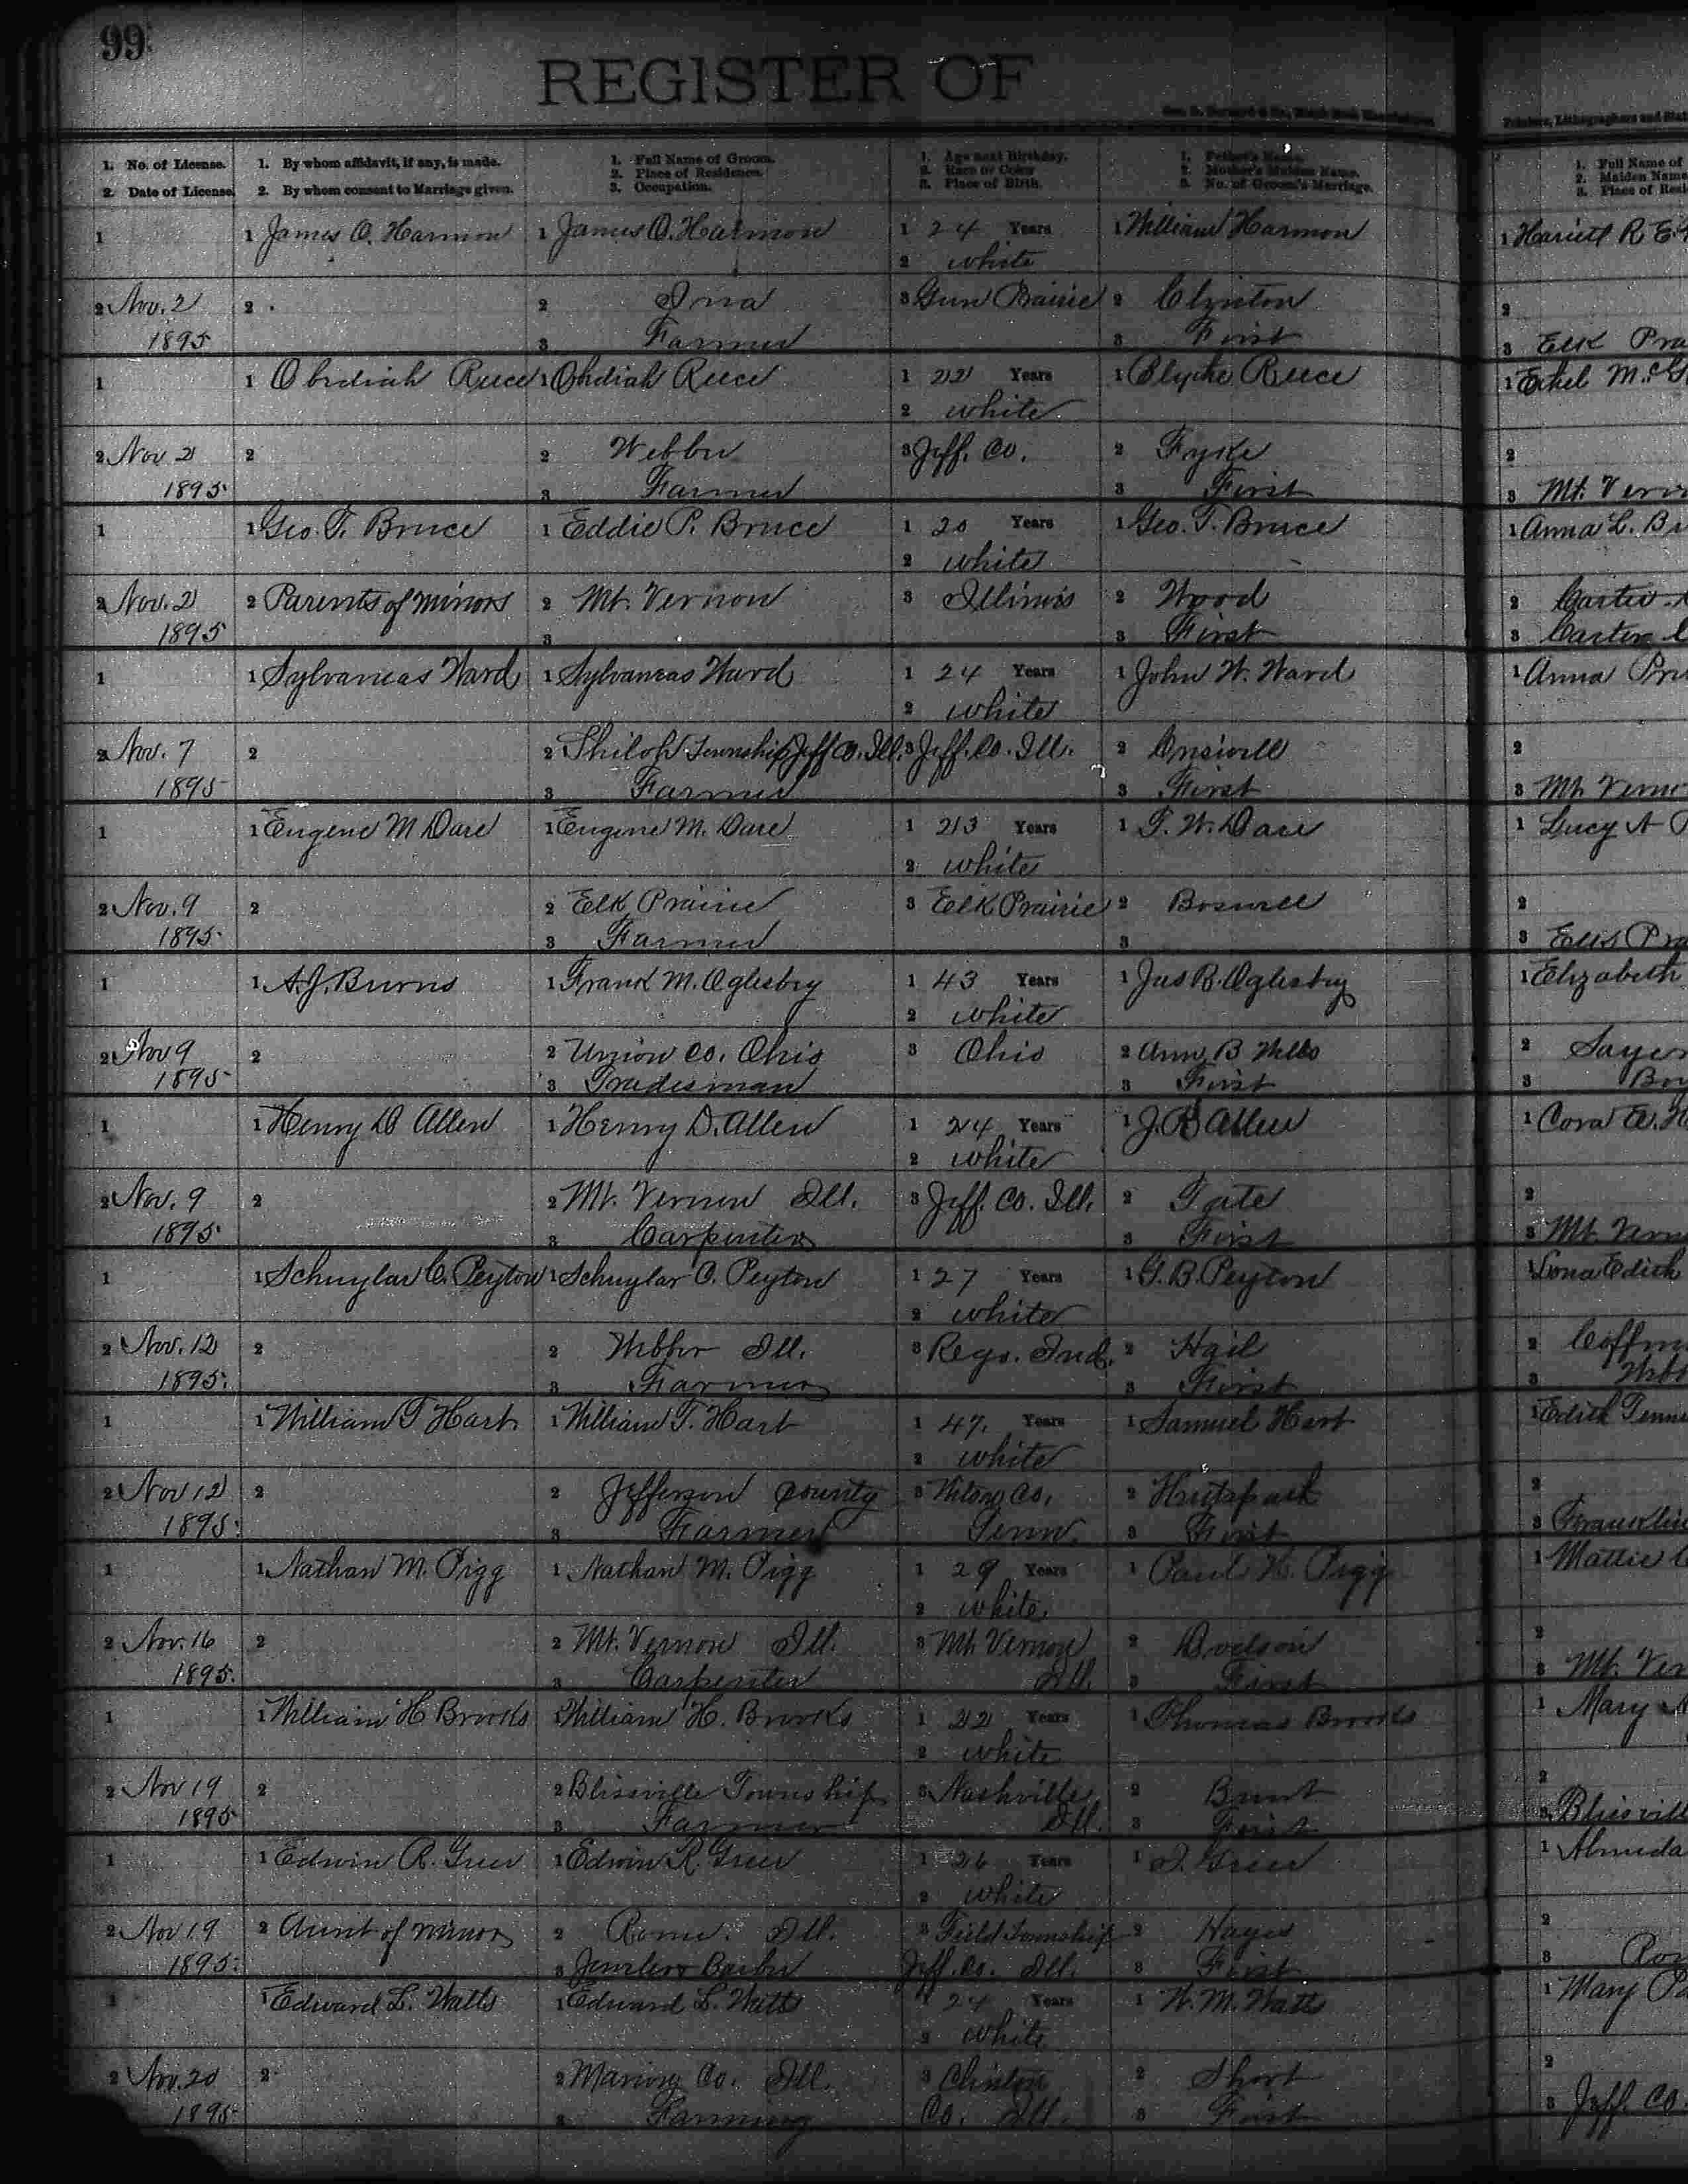 99
REGISTER OF
1. No. of License. 1. By whom affidavit, if any, is made. 1. Full Name of Groom. 1. Age next Birthday. 1. Father's Name. 1. Full Name of
2. Date of License. 2. By whom consent to Marriage given. 2. Place of Residence. 2. Race or Color 2. Mother's Maiden Name. 2. Maiden Name
3. Occupation. 3. Place of Birth. 3. No. of Groom's Marriage. 3. Place of Resi
1 1 James O. Harmon 1 James O. Harmon 1 24 Years 1 William Harmon 1 Hariett R E
2 white
2 Nov. 2 2 2 Ina 3 Gun Prairie 2 Clynton 2
1895 3 Farmer 3 First 3 Elk Pra
1 1 Obediah Reece 1 Obediah Reece 1 22 Years 1 Reece 1 Ethel Mc
2 white
2 Nov 2 2 2 Webber 3 Jeff. Co. 2 Fyske 2
1895 3 Farmer 3 First 3 Mt. Vern
1 1 Geo. T. Bruce 1 Eddie P. Bruce 1 20 Years 1 Geo. T. Bruce 1 Anna L. Br
2 white
2 Nov. 2 2 Parents of minors 2 Mt. Vernon 3 Illinois 2 Wood 2 Carter
1895 3 3 First 3 Carter
1 1 Sylvaneas Ward 1 Sylvaneas Ward 1 24 Years 1 John W. Ward 1 Anna Pru
2 white
2 Nov. 7 2 2 Shiloh Township Jeff Co. Ill. 3 Jeff. Co. Ill. 2 2
1895 3 Farmer 3 First 3 Mt Verno
1 1 Eugene M Dare 1 Eugene M. Dare 1 23 Years 1 T. W. Dare 1 Lucy A
2 white
2 Nov. 9 2 2 Elk Prairie 3 Elk Prairie 2 Boswell 2
1895 3 Farmer 3 3 Elk Pra
1 1 A. J. Burns 1 Frank M. Oglesby 1 43 Years 1 Jas R. Oglesby 1 Elizabeth
2 white
2 Nov 9 2 2 Union Co. Ohio 3 Ohio 2 Ann B Wells 2 Sayer
1895 3 Tradesman 3 First 3
1 1 Henry D Allen 1 Henry D. Allen 1 24 Years 1 J. R Allen 1 Cora A. H
2 white
2 Nov. 9 2 2 Mt. Vernon Ill. 3 Jeff. Co. Ill. 2 Tate 2
1895 3 Carpenter 3 First 3 Mt. Vern
1 1 Schuylar C. Peyton 1 Schuylar C. Peyton 1 27 Years 1 G. B. Peyton 1 Lona Edith
2 white
2 Nov. 12 2 2 Webber Ill. 3 Ind. 2 Hail 2 Coffm
1895 3 Farmer 3 First 3 Webb
1 1 William T Hart 1 William T. Hart 1 47 Years 1 Samuel Hart 1 Edith Tenn
2 white
2 Nov 12 2 2 Jefferson County 3 Wilson Co. 2 2
1895 3 Farmer Tenn. 3 First 3 Franklin
1 1 Nathan M. Pigg 1 Nathan M. Pigg 1 29 Years 1 Paul H. Pigg 1 Mattie
2 white
2 Nov. 16 2 2 Mt. Vernon Ill. 3 Mt Vernon 2 Dodson 2
1895 3 Carpenter Ill. 3 First 3 Mt. Ver
1 1 William H Brooks 1 William H. Brooks 1 22 Years 1 Thomas Brooks 1 Mary
2 white
2 Nov 19 2 2 Blissville Township 3 Nashville 2 2
1895 3 Farmer Ill. 3 First 3 Blissvill
1 1 Edwin R. Greer 1 Edwin R. Greer 1 26 Years 1 Greer 1 Almeda
2 white
2 Nov 19 2 Aunt of minor 2 Rome Ill. 3 Field Township 2 Hayes 2
1895 3 Jeweler & Barber Jeff. Co. Ill. 3 First 3 Rom
1 1 Edward L. Watts 1 Edward L. Watts 1 24 Years 1 W. M. Watts 1 Mary
2 white
2 Nov. 20 2 2 Marion Co. Ill. 3 Clinton 2 Short 2
1895 3 Farming Co. Ill. 3 First 3 Jeff. Co.